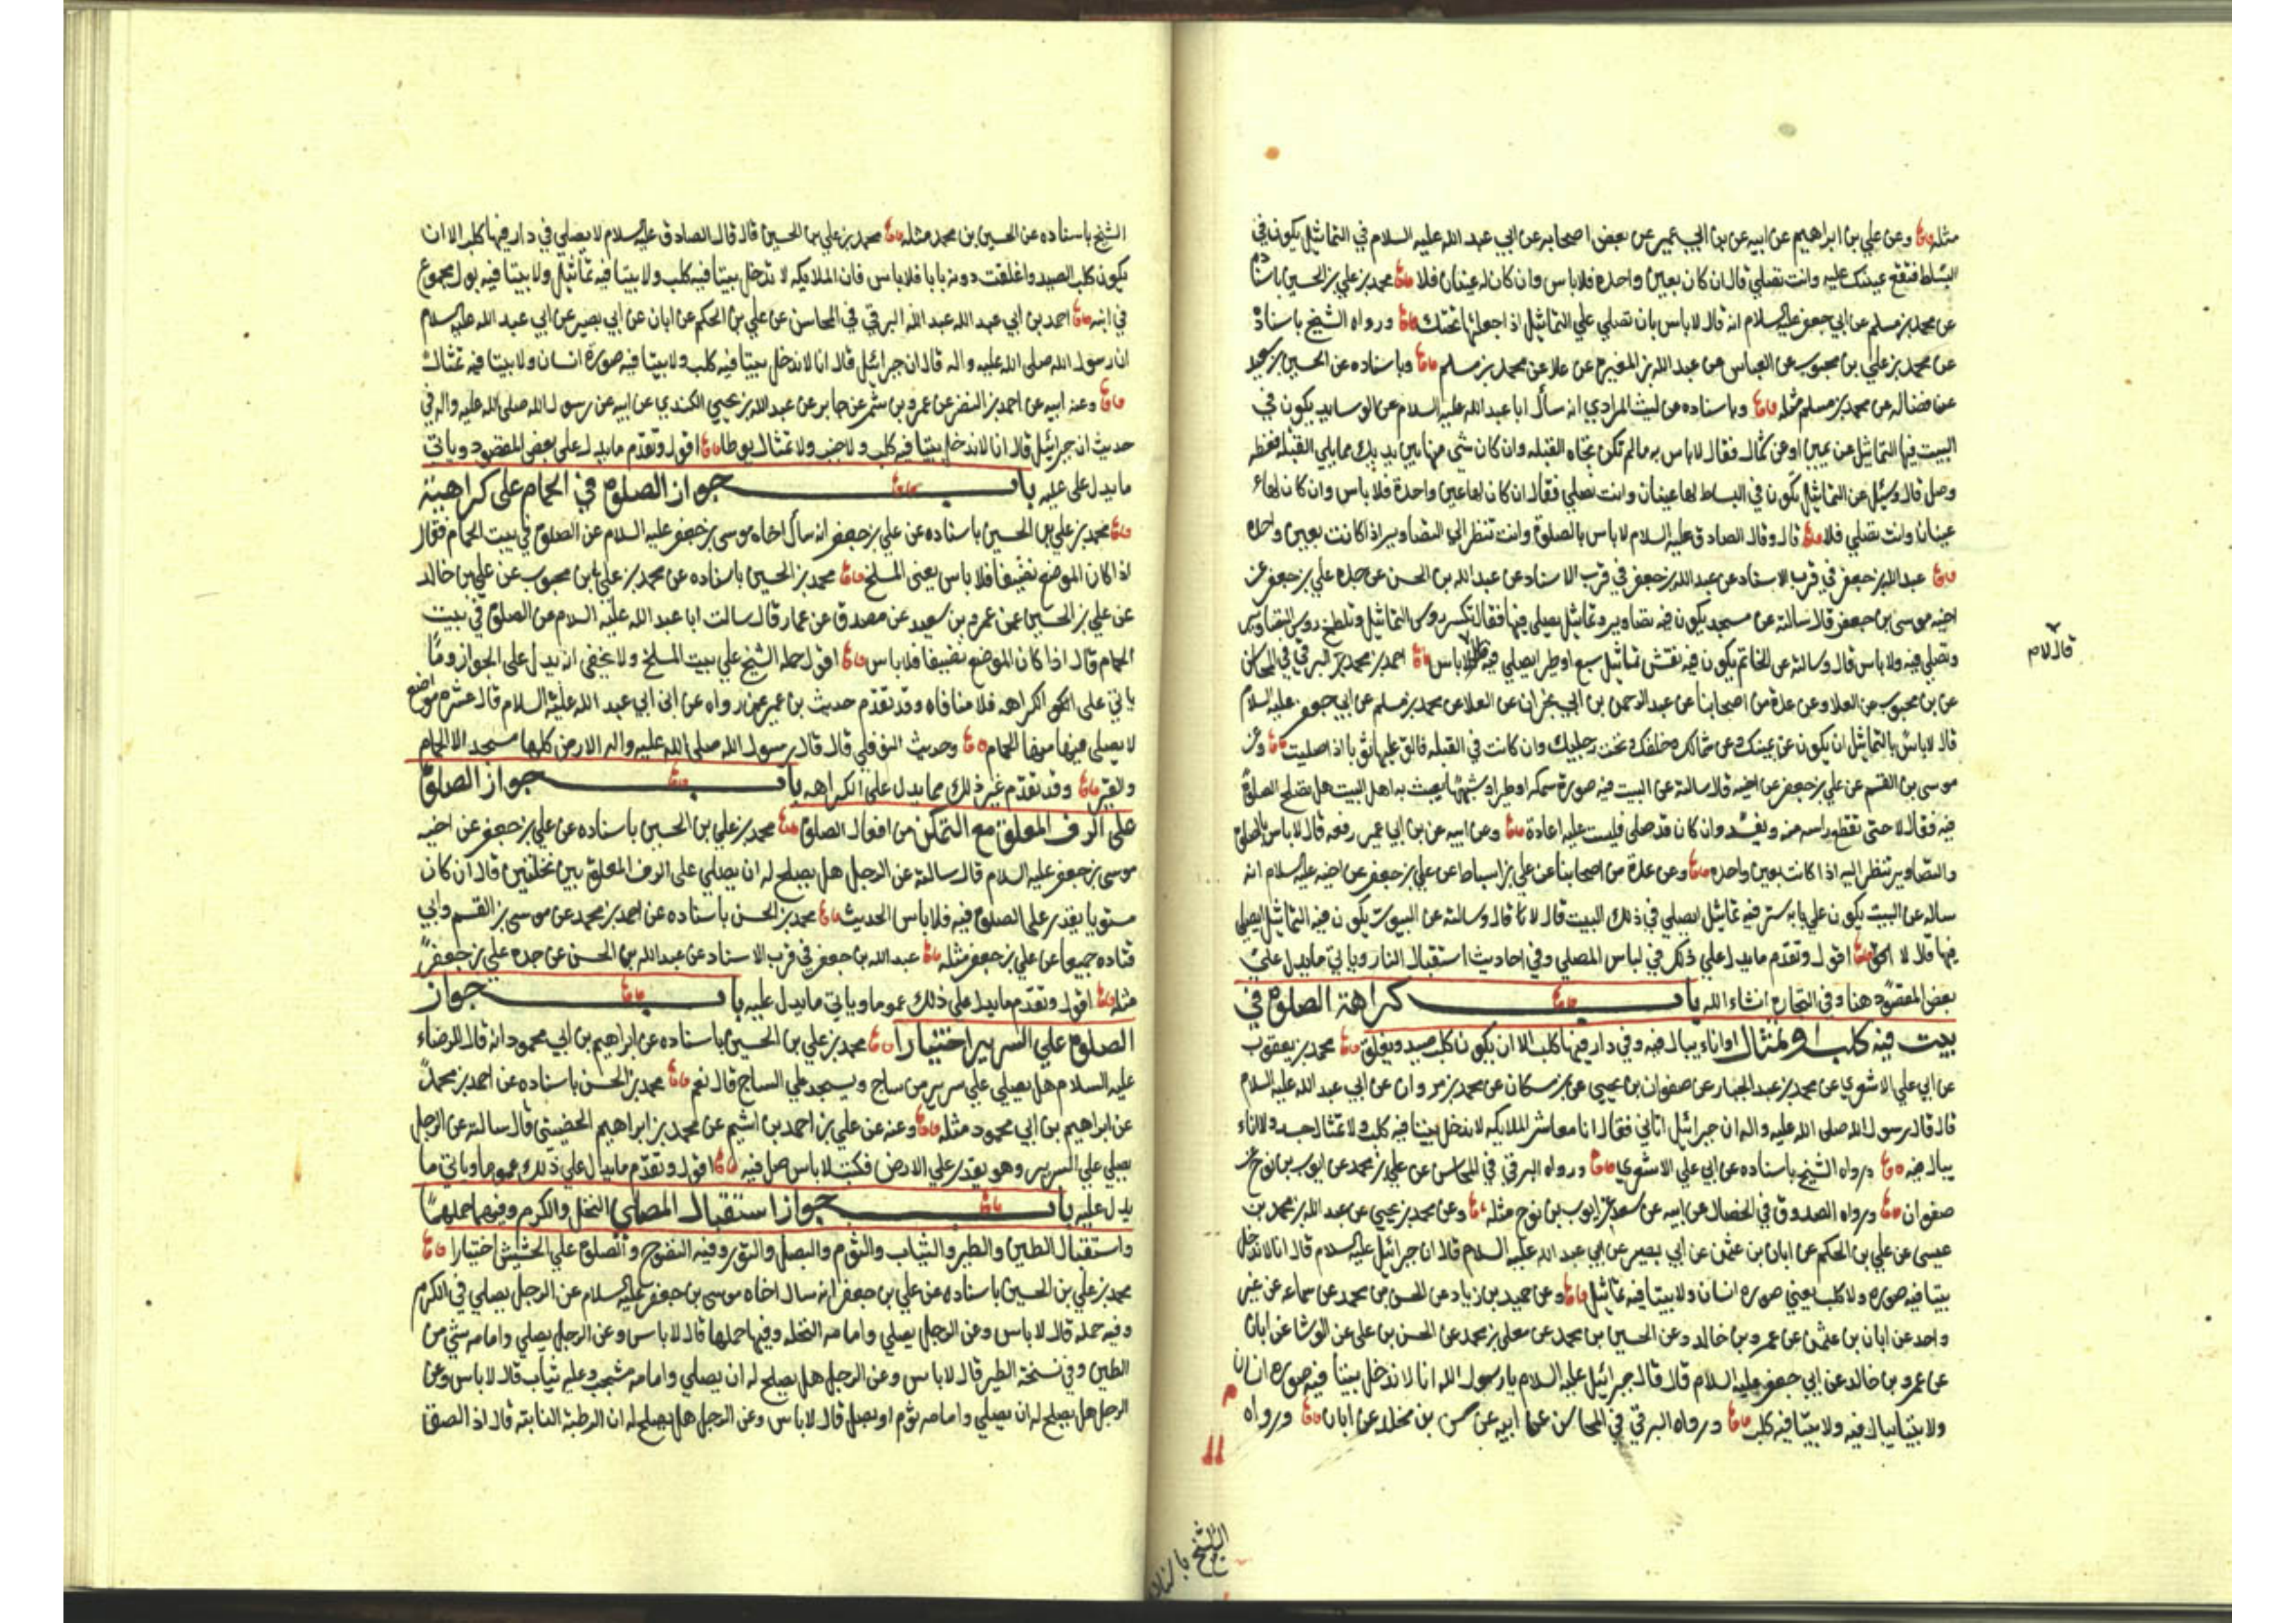 مثله وعن علي بن ابراهيم عن ابيه عن بن ابي عمير عن بعض اصحابه عن ابي عبد الله عليه السلام في التماثيل يكون في
البساط فتقع عينك عليه وانت تصلي قال ان كان بعين واحده فلا باس وان كان له عينان فلا محمد بن علي بن الحسين باسناده
عن محمد بن مسلم عن ابي جعفر عليه السلام انه قال لا باس بان تصلي علي التماثيل اذا جعلتها تحتك ورواه الشيخ باسناده
عن محمد بن علي بن محبوب عن العباس عن عبد الله بن المغيره عن علا عن محمد بن مسلم وباسناده عن الحسين بن سعيد
عن فضاله عن محمد بن مسلم مثله وباسناده عن ليث المرادي انه سأل ابا عبد الله عليه السلام عن الوسايد يكون في
البيت فيها التماثيل عن يمين او عن شمال فقال لا باس به ما لم تكن تجاه القبله وان كان شي منها بين يديك مما يلي القبله فغطه
وصل قال وسئل عن التماثيل تكون في البساط لها عينان وانت تصلي فقال ان كان لها عين واحدة فلا باس وان كان لها
عينان وانت تصلي فلا قال وقال الصادق عليه السلام لا باس بالصلوة وانت تنظر الي التصاوير اذا كانت بعين واحده
عبد الله بن جعفر في قرب الاسناد عن عبد الله بن الحسن عن جده علي بن جعفر عن
اخيه موسى بن جعفر قال سالته عن مسجد يكون فيه تصاوير وتماثيل يصلي فيها فقال تكسر روس التماثيل وتلطخ روس التصاوير
وتصلي فيه ولا باس قال وسالته عن الخاتم يكون فيه نقش تماثيل سبع او طير ايصلي فيه لا باس احمد بن محمد البرقي في المحاسن
قال لام
عن بن محبوب عن العلا وعن عدة من اصحابنا عن عبد الرحمن بن ابي نجران عن العلا عن محمد بن مسلم عن ابي جعفر عليه السلام
قال لا باس بالتماثيل ان يكون عن يمينك وعن شمالك وخلفك وتحت رجليك وان كانت في القبله فالق عليها ثوبا اذا صليت وعن
موسى بن القسم عن علي بن جعفر عن اخيه قال سالته عن البيت فيه صورة سمكه او طير او شبهها يعبث به اهل البيت هل تصلح الصلوة
فيه فقال لا حتى تقطع راسه منه ويفسد وان كان قد صلي فليست عليه اعادة وعن ابيه عن بن ابي عمير رفعه قال لا باس بالصلوة
والتصاوير تنظر اليه اذا كانت بعين واحده وعن عدة من اصحابنا عن علي بن اسباط عن علي بن جعفر عن اخيه عليه السلام انه
ساله عن البيت يكون علي بابه ستر فيه تماثيل ايصلي في ذلك البيت قال لا قال وسالته عن البيوت يكون فيه التماثيل ايصلي
فيها قال لا اقول وتقدم ما يدل علي ذلك في لباس المصلي وفي احاديث استقبال النار وياتي ما يدل علي
بعض المقصود هنا وفي التجارة انشاء الله باب كراهة الصلوة في
بيت فيه كلب او تمثال او اناء يبال فيه وفي دار فيها كلب الا ان يكون كلب صيد ويغلق محمد بن يعقوب
عن ابي علي الاشعري عن محمد بن عبد الجبار عن صفوان بن يحيي عن بن مسكان عن محمد بن مروان عن ابي عبد الله عليه السلام
قال قال رسول الله صلى الله عليه واله ان جبرائيل اتاني فقال انا معاشر الملايكه لا ندخل بيتا فيه كلب ولا تمثال جسد ولا اناء
يبال فيه ورواه الشيخ باسناده عن ابي علي الاشعري ورواه البرقي في المحاسن عن علي بن محمد عن ايوب بن نوح عن
صفوان ورواه الصدوق في الخصال عن ابيه عن سعد عن ايوب بن نوح مثله وعن محمد بن يحيي عن عبد الله بن محمد بن
عيسى عن علي بن الحكم عن ابان بن عثمن عن ابي بصير عن ابي عبد الله عليه السلام قال ان جبرائيل عليه السلام قال انا لا ندخل
بيتا فيه صوره ولا كلب يعني صوره انسان ولا بيتا فيه تماثيل وعن حميد بن زياد عن الحسن بن محمد عن سماعه عن غير
واحد عن ابان بن عثمن عن عمرو بن خالد وعن الحسين بن محمد عن معلي بن محمد عن الحسن بن علي عن الوشا عن ابان
عن عمرو بن خالد عن ابي جعفر عليه السلام قال قال جبرائيل عليه السلام يا رسول الله انا لا ندخل بيتا فيه صوره انسان
ولا بيتا يبال فيه ولا بيتا فيه كلب ورواه البرقي في المحاسن عن ابيه عن بن مخلد عن ابان ورواه
الشيخ باسناده
الشيخ باسناده عن الحسين بن محمد مثله محمد بن علي بن الحسين قال قال الصادق عليه السلام لا يصلي في دار فيها كلب الا ان
يكون كلب الصيد واغلقت دونه بابا فلا باس فان الملايكه لا تدخل بيتا فيه كلب ولا بيتا فيه تماثيل ولا بيتا فيه بول مجموع
في انيه احمد بن ابي عبد الله عبد الله البرقي في المحاسن عن علي بن الحكم عن ابان عن ابي بصير عن ابي عبد الله عليه السلام
ان رسول الله صلى الله عليه واله قال ان جبرائيل قال انا لا ندخل بيتا فيه كلب ولا بيتا فيه صورة انسان ولا بيتا فيه تمثال
وعنه ابيه عن احمد بن النضر عن عمرو بن شمر عن جابر عن عبد الله بن يحيي الكندي عن ابيه عن رسول الله صلى الله عليه واله في
حديث ان جبرائيل قال انا لا ندخل بيتا فيه كلب ولا جنب ولا تمثال يوطا اقول وتقدم ما يدل علي بعض المقصود وياتي
ما يدل علي عليه باب جواز الصلوة في الحمام على كراهية
محمد بن علي بن الحسين باسناده عن علي بن جعفر انه سأل اخاه موسى بن جعفر عليه السلام عن الصلوة في بيت الحمام فقال
اذا كان الموضع نظيفا فلا باس يعني المسلخ محمد بن الحسين باسناده عن محمد بن علي بن محبوب عن علي بن خالد
عن علي بن الحسين عن عمرو بن سعيد عن مصدق عن عمار قال سالت ابا عبد الله عليه السلام عن الصلوة في بيت
الحمام قال اذا كان الموضع نضيفا فلا باس اقول حمله الشيخ علي بيت المسلخ ولا يخفي انه يدل على الجواز وما
ياتي على الكراهه فلا منافاه وقد تقدم حديث بن عمير عمن رواه عن ابي عبد الله عليه السلام قال عشرة مواضع
لا يصلي فيها منها الحمام وحديث النوفلي قال قال رسول الله صلى الله عليه واله الارض كلها مسجد الا الحمام
والقبر وقد تقدم غير ذلك مما يدل على الكراهه باب جواز الصلوة
على الرف المعلق مع التمكن من افعال الصلوة محمد بن علي بن الحسين باسناده عن علي بن جعفر عن اخيه
موسى بن جعفر عليه السلام قال سالته عن الرجل هل يصلح له ان يصلي على الرف المعلق بين نخلتين قال ان كان
مستويا يقدر على الصلوة فيه فلا باس الحديث محمد بن الحسن باسناده عن احمد بن محمد عن موسى بن القسم وابي
قتاده جميعا عن علي بن جعفر مثله عبد الله بن جعفر في قرب الاسناد عن عبد الله بن الحسن عن جده علي بن جعفر
مثله اقول وتقدم ما يدل على ذلك عموما وياتي ما يدل عليه باب جواز
الصلوة علي السرير اختيارا محمد بن علي بن الحسين باسناده عن ابراهيم بن ابي محمود انه قال للرضاء
عليه السلام هل يصلي علي سرير من ساج ويسجد علي الساج قال نعم محمد بن الحسن باسناده عن احمد بن محمد
عن ابراهيم بن ابي محمود مثله وعنه عن علي بن احمد بن اشيم عن محمد بن ابراهيم الحضيني قال سالته عن الرجل
يصلي علي السرير وهو يقدر علي الارض فكتب لا باس صل فيه اقول وتقدم ما يدل علي ذلك عموما وياتي ما
يدل عليه باب جواز استقبال المصلي النخل والكرم وفيهما حملهما
واستقبال الطين والطير والثياب والثوم والبصل والتور وفيه النضوح والصلوة علي الحشيش اختيارا
محمد بن علي بن الحسين باسناده عن علي بن جعفر انه سال اخاه موسى بن جعفر عليه السلام عن الرجل يصلي في الكرم
وفيه حمله قال لا باس وعن الرجل يصلي وامامه النخله وفيها حملها قال لا باس وعن الرجل يصلي وامامه شي من
الطين وفي نسخة الطير قال لا باس وعن الرجل هل يصلح له ان يصلي وامامه مشجب وعليه ثياب قال لا باس وعن
الرجل هل يصلح له ان يصلي وامامه ثوم او بصل قال لا باس وعن الرجل هل يصلح له ان الرطبة النابته قال اذا الصق